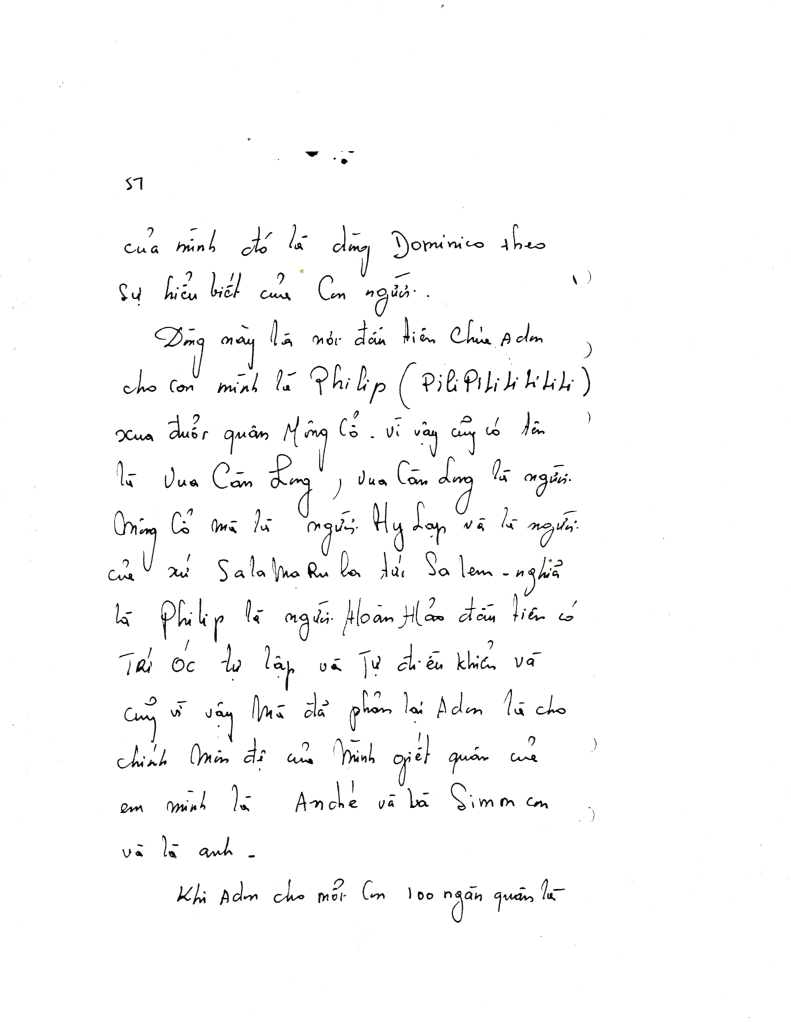 57
của mình đó là dòng Dominico theo
sự hiểu biết của Con người.
Dòng này là nói đấn tiên Chúa Adon
cho con mình là Philip (PiLiPiLiLiLiLiLi)
xua đuổi quân Mông Cổ. vì vậy cũng có tên
là Vua Càn Long, Vua Càn Long là người
Mông Cổ mà là người Hy Lạp và là người
của xứ SalaMaRu la tức Salem - nghĩa
là Philip là người Hoàn Hảo đấn tiên có
TRÍ ÓC tự lập và Tự điều khiển và
cũng vì vậy Mà đã phản lại Adon là cho
chính Môn đệ của Mình giết quân của
em mình là André và bà Simmon con
và là anh -
Khi Adon cho mỗi Con 100 ngàn quân là